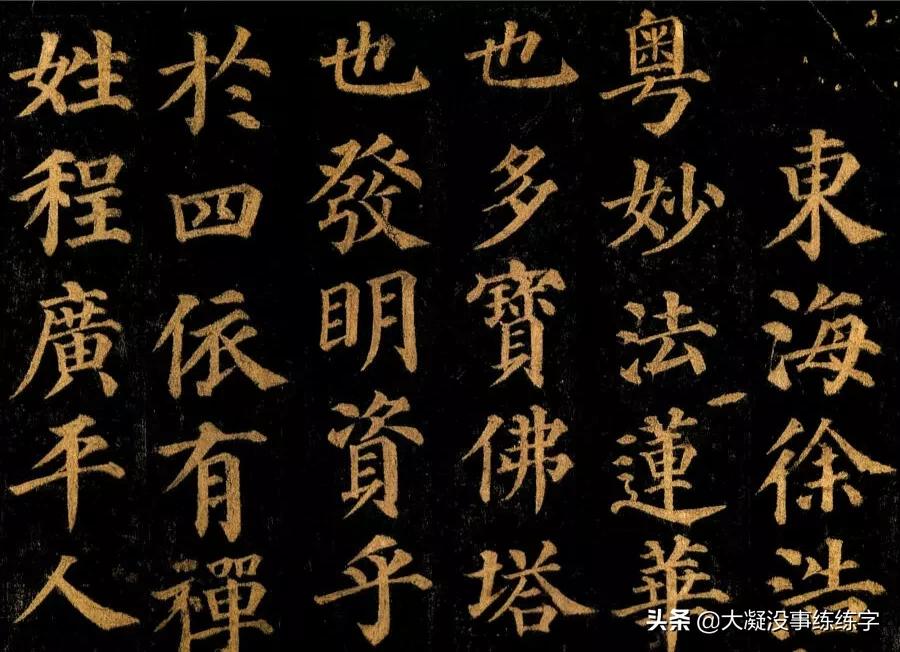 東海徐浩
粵妙法蓮華
也多寶佛塔
也發明資乎
於四依有禪
姓程廣平人
头条 @大凝没事练练字